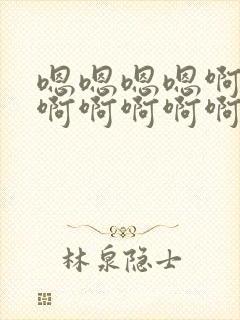 嗯嗯嗯嗯啊
啊啊啊啊啊
林泉隐士